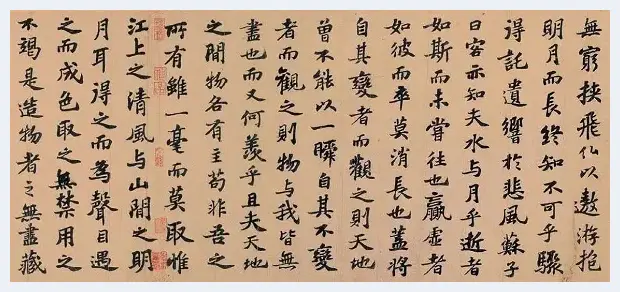 無窮挾飛仙以遨游抱
明月而長終知不可乎驟
得託遺響於悲風蘇子
曰客亦知夫水与月乎逝者
如斯而未嘗往也贏虛者
如彼而卒莫消長也蓋將
自其變者而觀之則天地
曾不能以一瞬自其不變
者而觀之則物与我皆無
盡也而又何羨乎且夫天地
之間物各有主苟非吾之
所有雖一毫而莫取惟
江上之清風与山間之明
月耳得之而為聲目遇
之而成色取之無禁用之
不竭是造物者之無盡藏